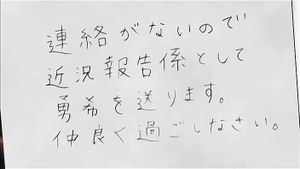 連絡がないので
近況報告係として
勇希を送ります。
仲良く過ごしなさい。